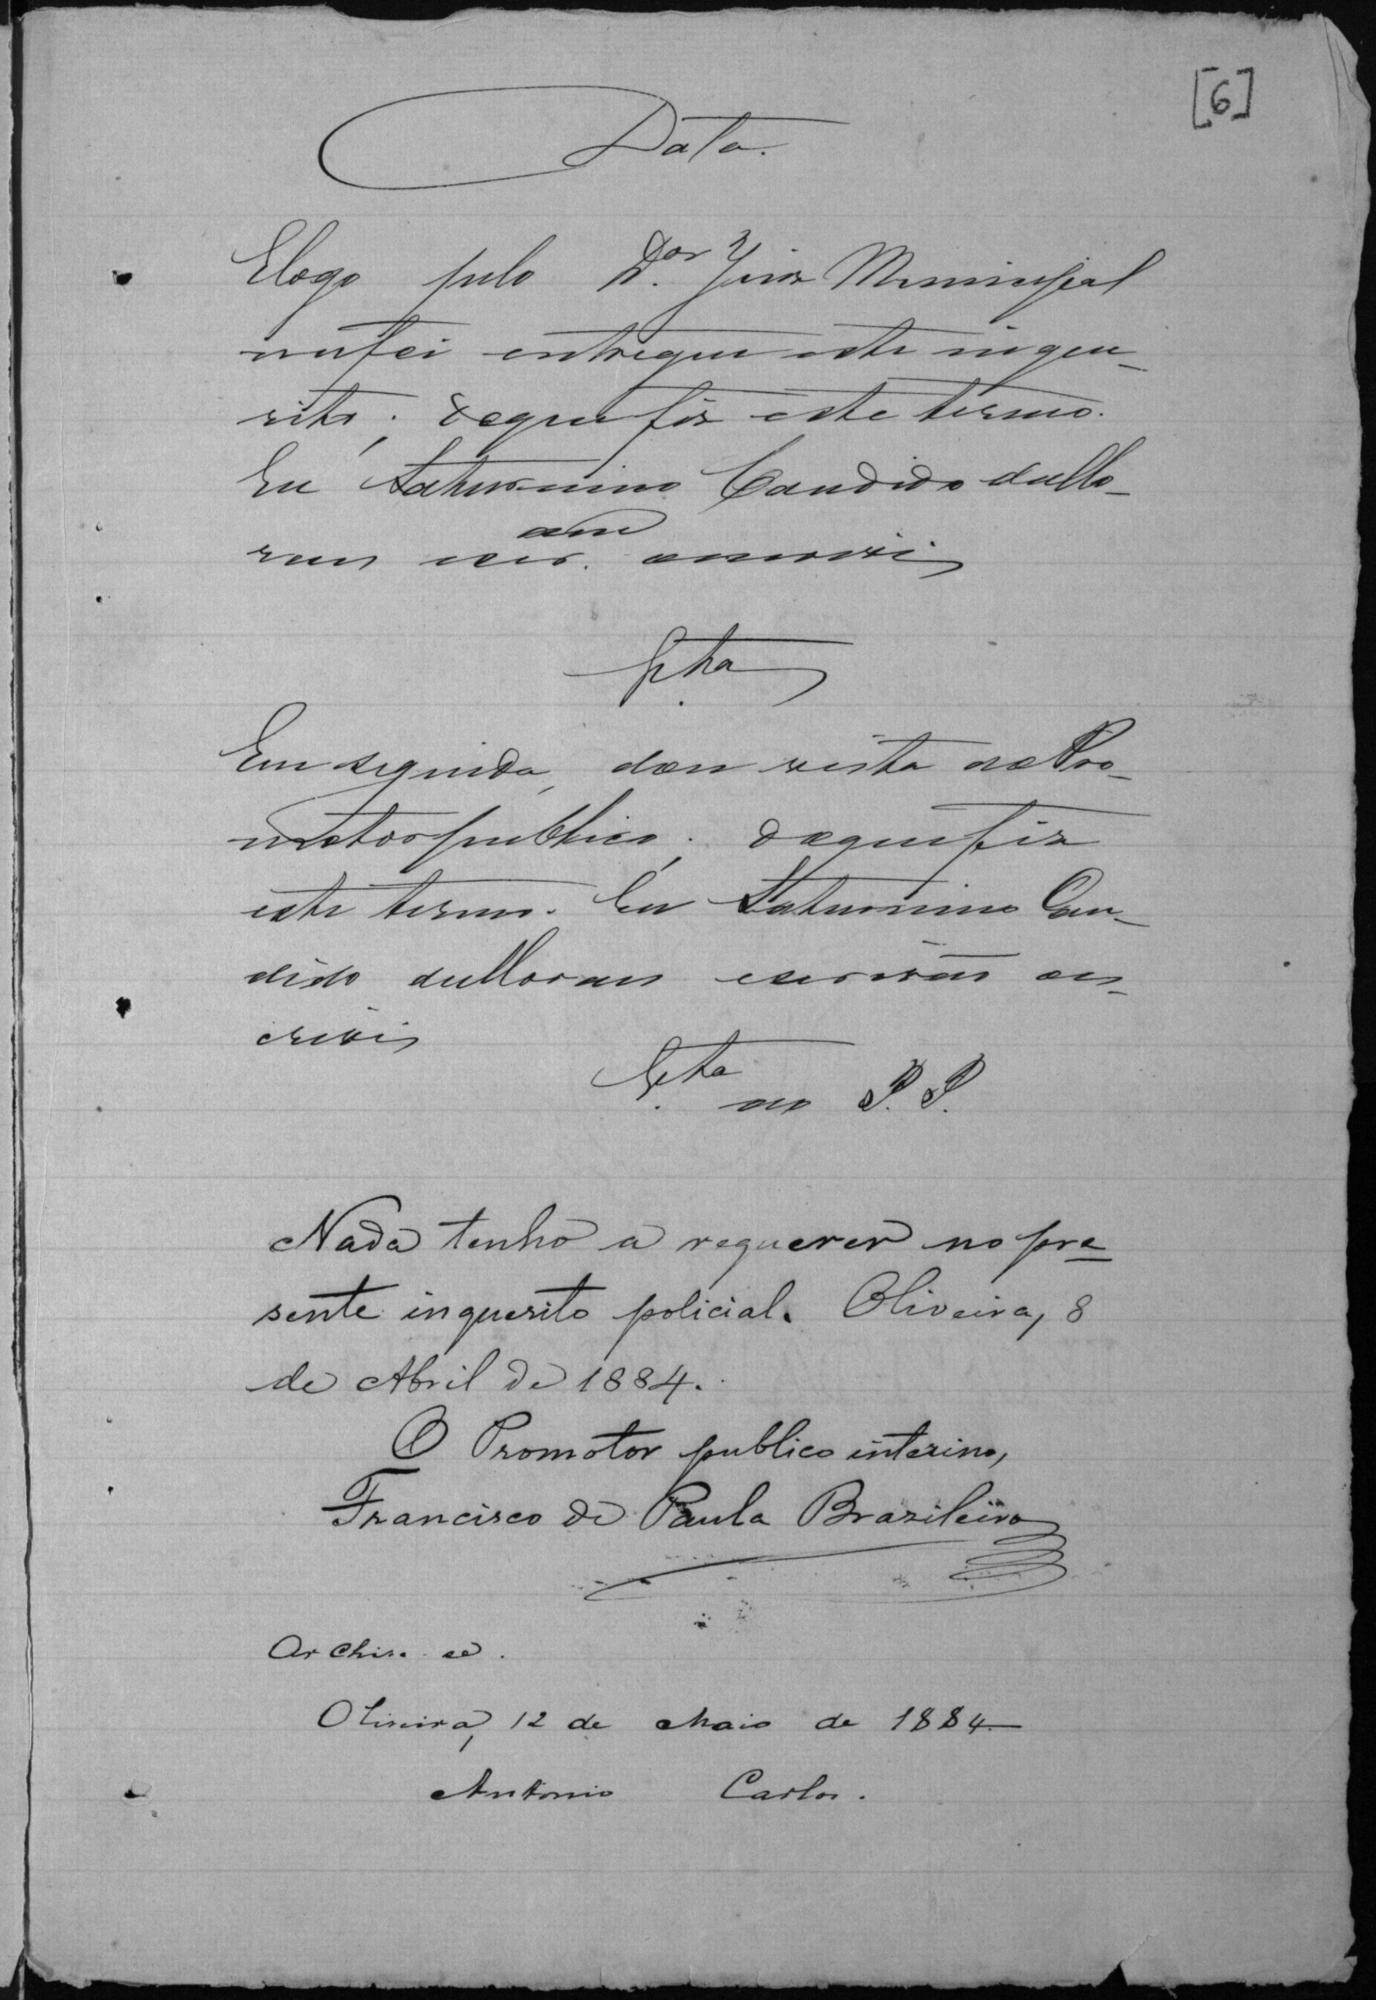 [6]
Data.
E logo pelo Dor. Juiz Municipal
me foi entregue este inque-
rito; do que fiz este termo.
Eu Saturnino Candido de Mo-
raes escr.am o escrevi
Vta
Em seguida, dou vista ao Pro-
motor publico; do que fiz
este termo. Eu Saturnino Can-
dido de Moraes escrivão o es-
crevi
Vta ao P. P.
Nada tenho a requerer no pre-
sente inquerito policial. Oliveira, 8
de Abril de 1884.
O Promotor publico interino,
Francisco de Paula Brazileiro
Archive-se.
Oliveira, 12 de Maio de 1884
Antonio Carlos.